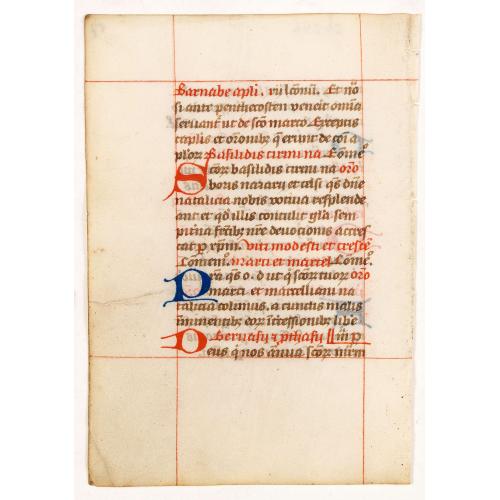 Barnabe apli. viii lcōnū. Et nō
si ante penthecosten venerit omīa
seruant᷑ ut de scō marco. Exceptis
caplis et orōnibꝫ q̄ erunt de cōi a
plorꝝ Basilidis cirini na Cōmeº.
Scorꝝ basilidis cirini na orō
boris nazarii et celsi qs dn̄e
natalicia nobis votiua resplende
ant et qd̄ illis contulit glā sem
piterna fructibꝫ nr̄e deuotionis accres
cat ꝑ xpm̄. Viti modesti et cresce
Comem̄. Marci et marcel. Cōmeº.
Pr̄a qs o. d ut q̄ scōr tuorꝝ orō
marci et marcelliani na
talicia colimus, a cunctis malis
iminentibꝫ eorꝝ it̄cessionibꝫ libe
Geruasii ꝛ ꝓthasii
Deus q̇ nos ānua scōrꝝ